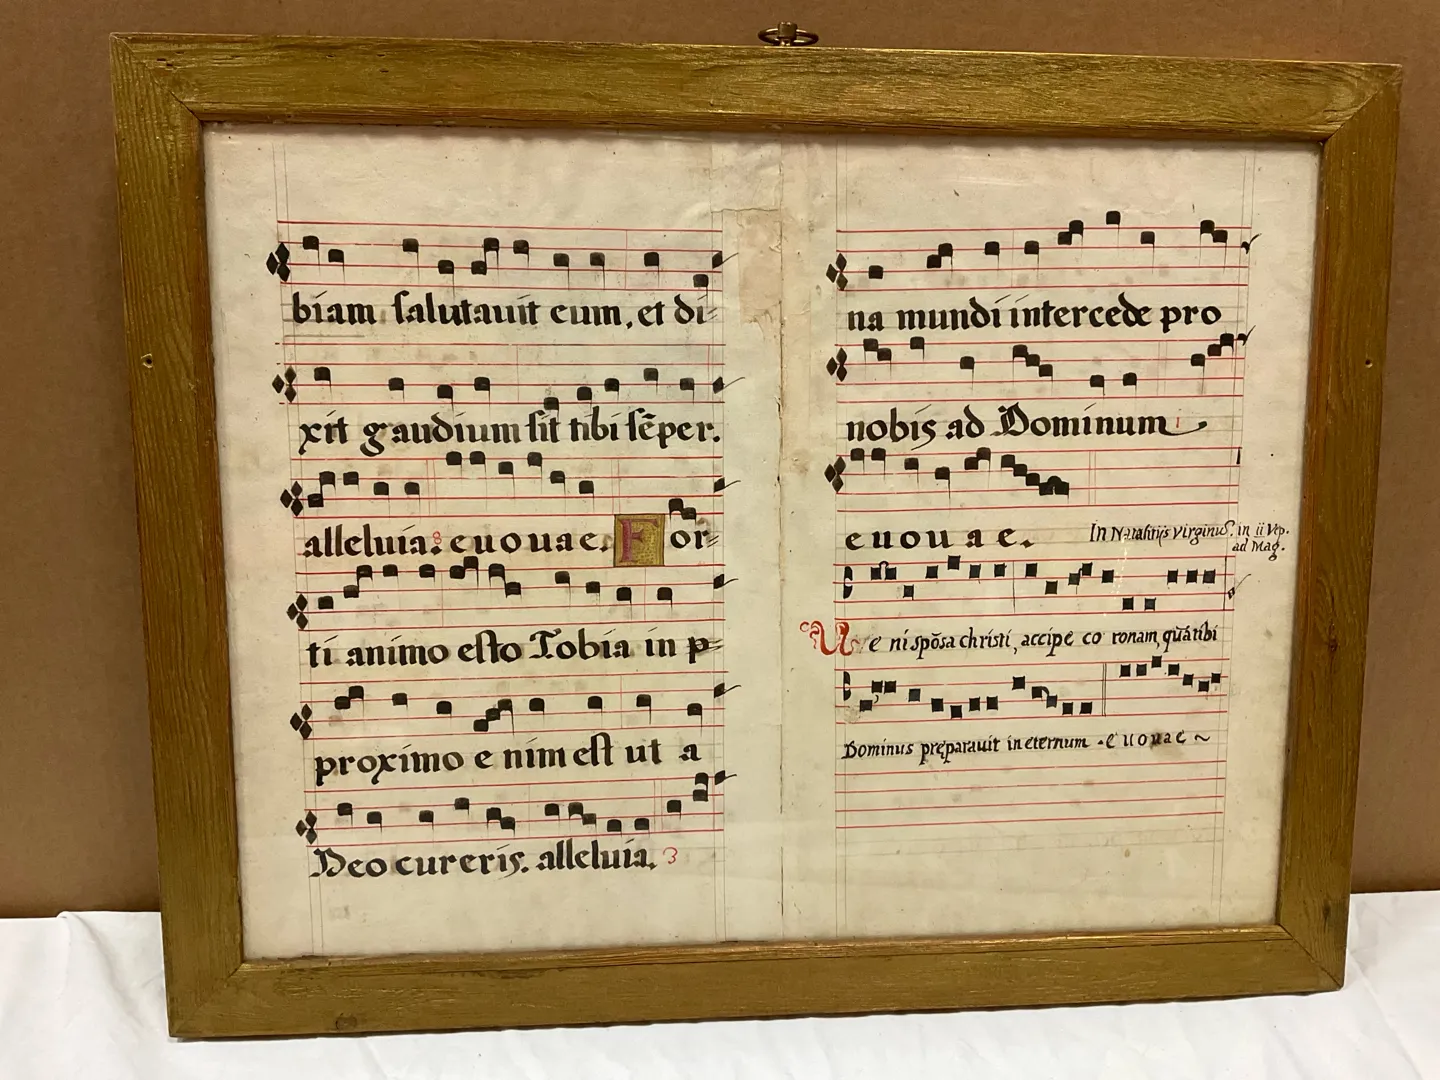 biam salutauit eum, et di=
xit gaudium sit tibi sēper.
alleluia. 8 e u o u a e. For=
ti animo esto Tobia in p=
proximo e nim est ut a
Deo cureris. alleluia. 3
na mundi intercede pro
nobis ad Dominum
e u o u a e.
In Natalitijs virginū. in ii Vep.
ad Mag.
Ve ni spōsa christi, accipe co ronam, quā tibi
Dominus pręparauit in eternum - e u o u a e ~